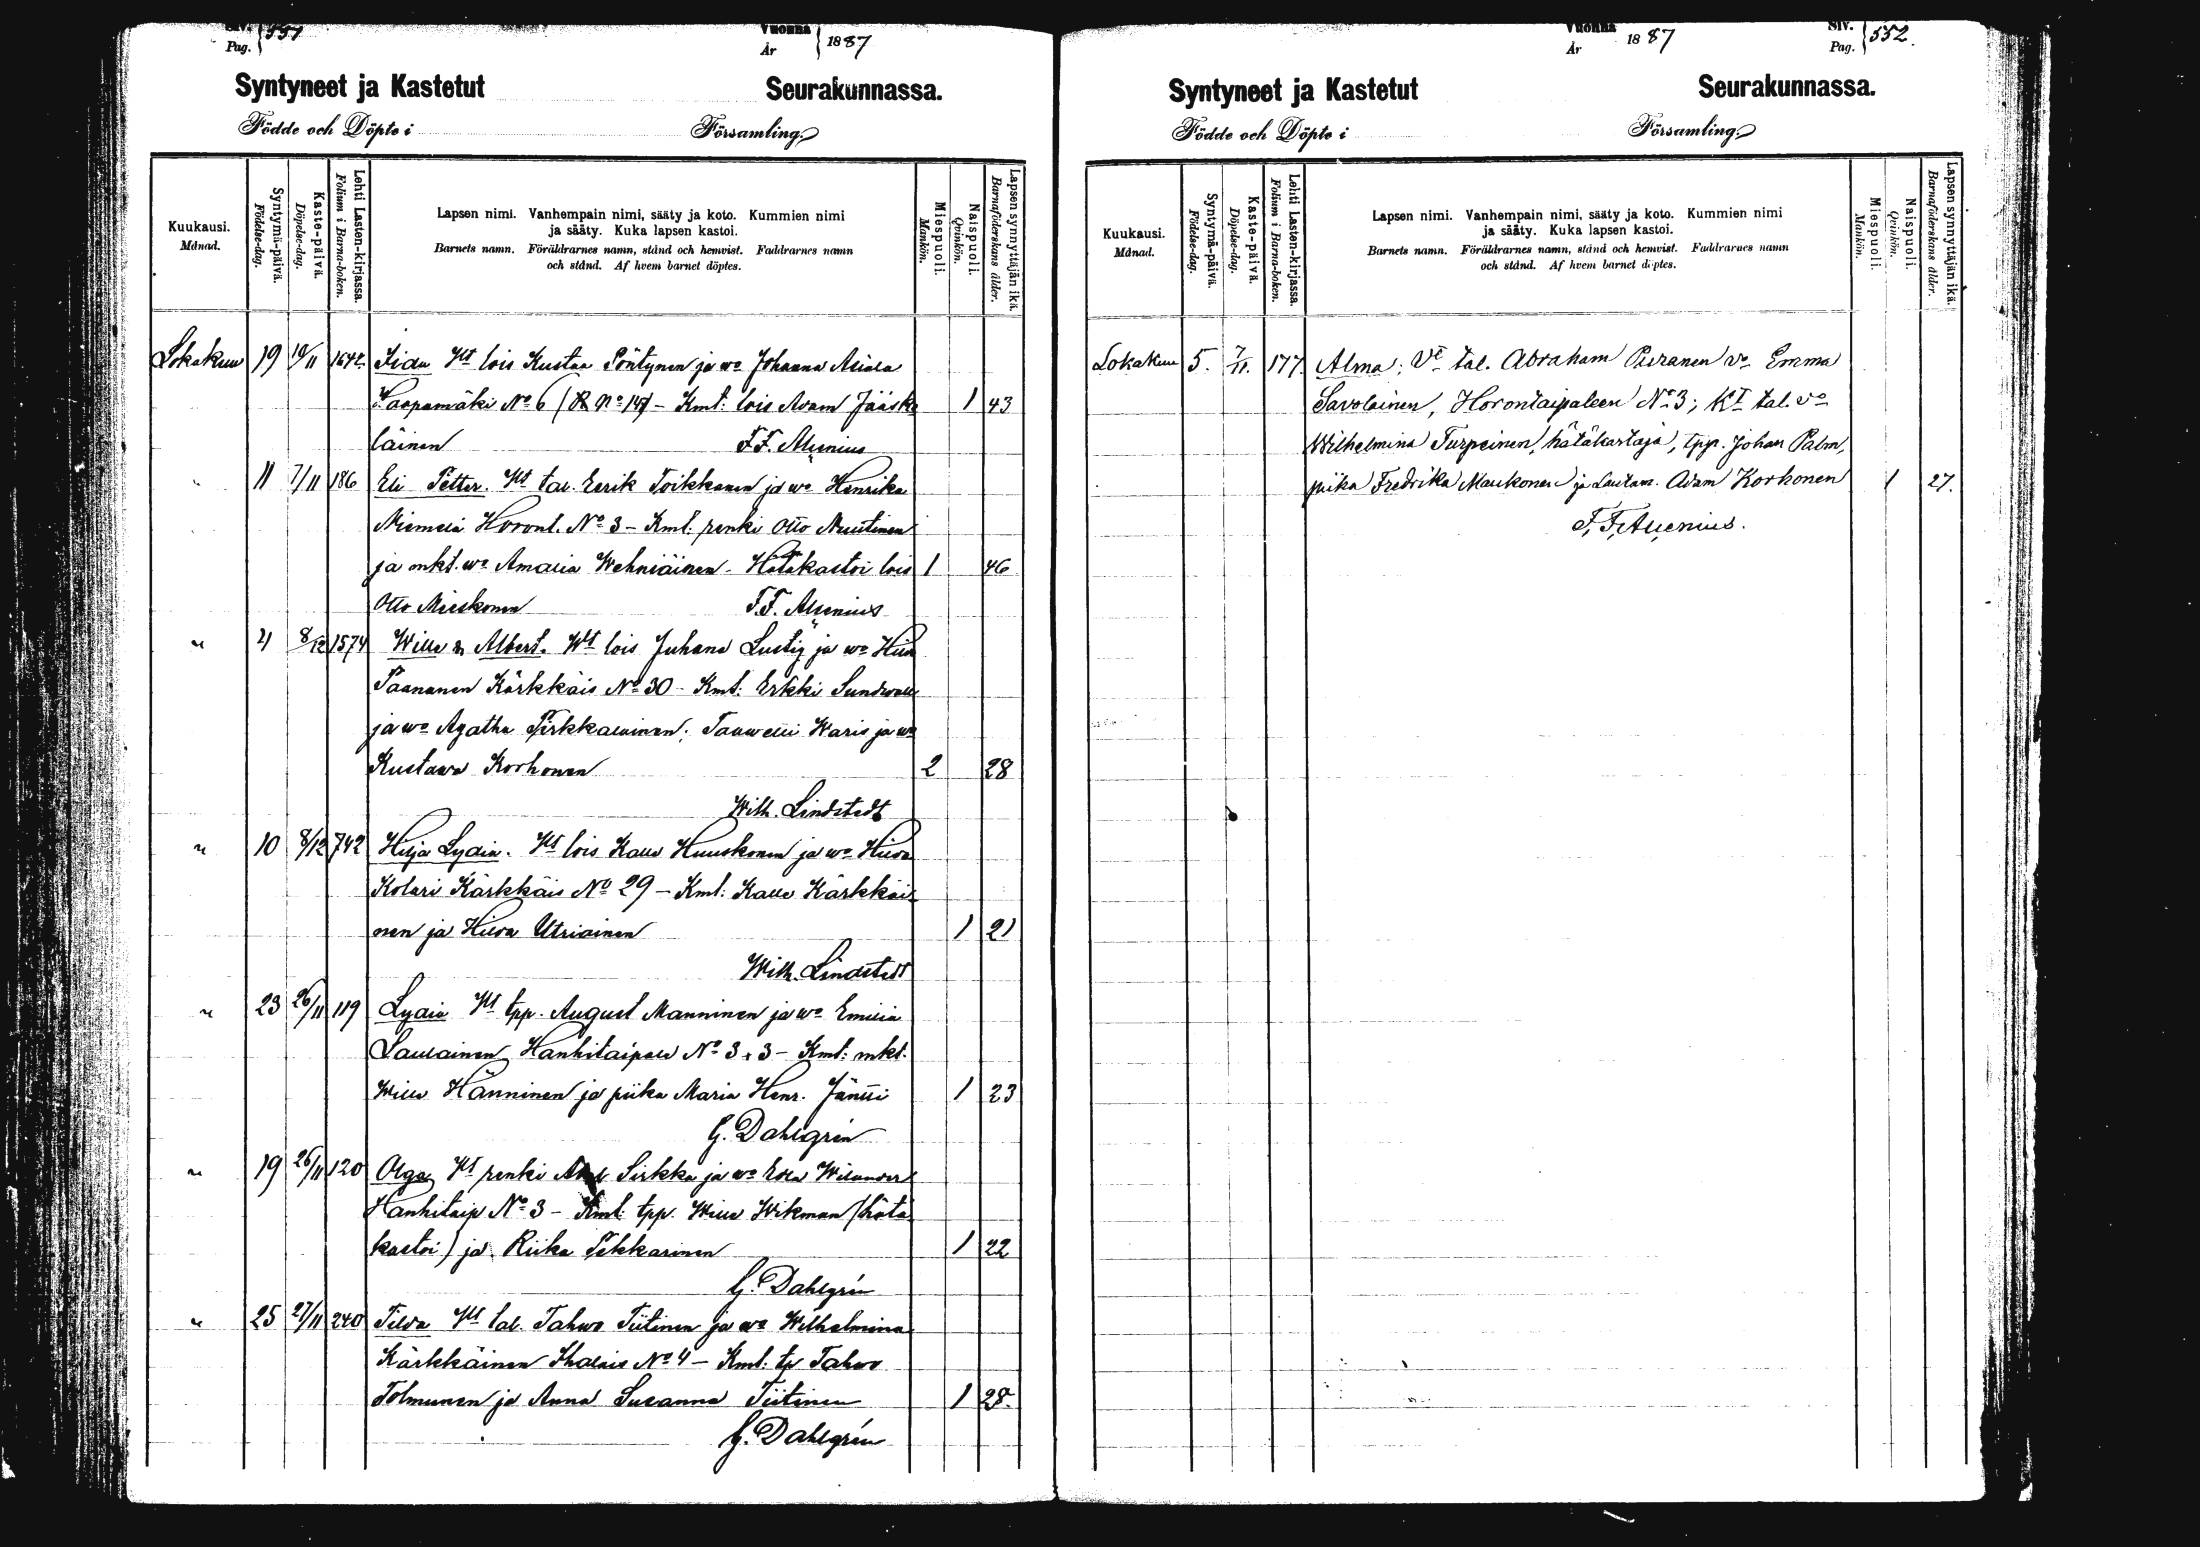 Pag. 551
Vuonna
År 1887
Syntyneet ja Kastetut Seurakunnassa.
Födde och Döpte i Församling.
Kuukausi.
Månad.
Syntymä-päivä.
Födelse-dag.
Kaste-päivä.
Döpelse-dag.
Lehti Lasten-kirjassa.
Folium i Barna-boken.
Lapsen nimi. Vanhempain nimi, sääty ja koto. Kummien nimi
ja sääty. Kuka lapsen kastoi.
Barnets namn. Föräldrarnes namn, stånd och hemvist. Faddrarnes namn
och stånd. Af hvem barnet döptes.
Miespuoli.
Mankön.
Naispuoli.
Qvinkön.
Lapsen synnyttäjän ikä.
Barnaföderskans ålder.
Lokakuu 19 10/11 Iida Kst lois Kustaa Pöntynen ja wo Johanna
No 6 (R No 147) – Kmt: lois Adam Jääske 1 43
läinen F.F. Alenius
" 11 7/11 186 Eli Petter. Kst tal. Eerik Toikkanen ja wo Henrika
Niemelä Horont. No 3 – Kmt: renki Otto Nuutinen
ja mkt. wo Amalia Wehniäinen – Hätäkastoi lois 1 46
Otto Mieskonen F.F. Alenius
" 4 8/12 1574 Wille Albert. Kst lois Juhana Lustig ja wo Hilda
Paananen Kärkkäis No 30 – Kmt: Erkki Sundwall
ja wo Agatha Pirkkalainen; Taawetti Waris ja wo
Kustawa Korhonen 2 28
Wilh. Lindstedt
" 10 8/12 742 Hilja Lydia. Kst lois Kalle Huuskonen ja wo Hilda
Kolari Kärkkäis No 29 – Kmt: Kalle Kärkkäi
nen ja Hilda Utriainen 1 21
Wilh. Lindstedt
" 23 26/11 119 Lydia Kst tpp. August Manninen ja wo Emilia
Laulainen Hankitaipale No 3 – Kmt: mkt.
Wille Hänninen ja piika Maria Henr. Jäntti 1 23
G. Dahlgrén
" 19 26/11 120 Olga Kst renki Sirkka ja wo Edla Wilander
Hankitaip No 3 – Kmt: tpp. Wille Wikman (hätä
kastoi) ja Riika Pekkarinen 1 22
G. Dahlgrén
" 25 27/11 240 Tilda Kst tal. Tahwo Tiitinen ja wo Wilhelmina
Kärkkäinen Ihalais No 4 – Kmt: tp Tahwo
Tolmunen ja Anna Susanna Tiitinen 1 28.
G. Dahlgrén
Vuonna
År 1887
Siv.
Pag. 552.
Syntyneet ja Kastetut Seurakunnassa.
Födde och Döpte i Församling.
Kuukausi.
Månad.
Syntymä-päivä.
Födelse-dag.
Kaste-päivä.
Döpelse-dag.
Lehti Lasten-kirjassa.
Folium i Barna-boken.
Lapsen nimi. Vanhempain nimi, sääty ja koto. Kummien nimi
ja sääty. Kuka lapsen kastoi.
Barnets namn. Föräldrarnes namn, stånd och hemvist. Faddrarnes namn
och stånd. Af hvem barnet döptes.
Miespuoli.
Mankön.
Naispuoli.
Qvinkön.
Lapsen synnyttäjän ikä.
Barnaföderskans ålder.
Lokakuu 5. 7/11. 177 Alma; Vt tal. Abraham Puranen vo Emma
Savolainen, Horontaipaleen No 3; Kt tal. vo
Wilhelmina Turpeinen, hätäkastaja, tpp. Johan Palm,
piika Fredrika Maukonen ja Lautam. Adam Korhonen 1 27.
F.F. Alenius.